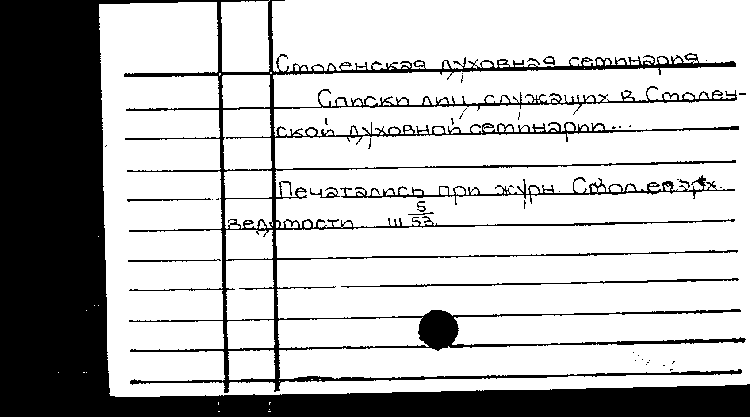 Смоленская духовная семинария
Списки лиц, служащих в Смолен-
ской духовной семинарии...
Печатались при журн. Смол. епарх.
ведомости III 5/53